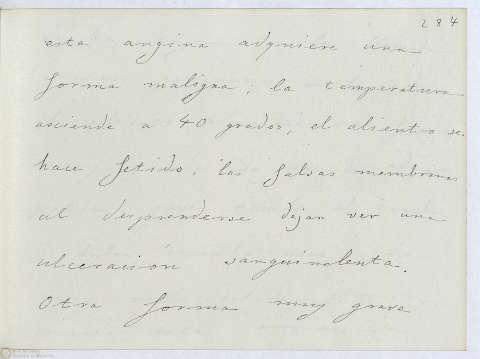 284
esta angina adquiere una
forma maligna; la temperatura
asciende a 40 grados, el aliento se
hace fetido, las falsas membranas
al desprenderse dejan ver una
ulceración sanguinolenta.
Otra forma muy grave